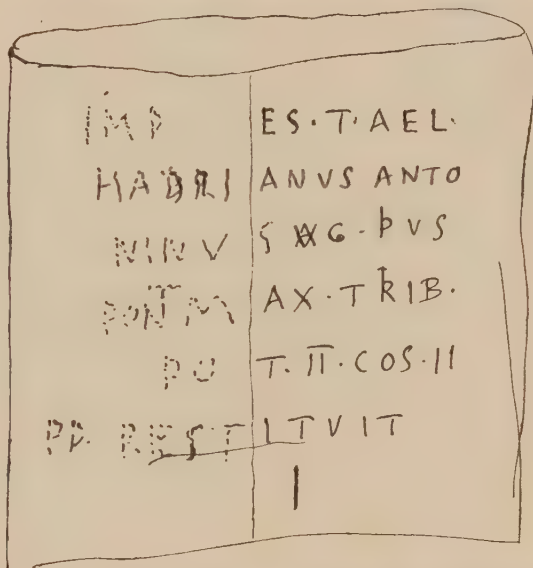 IMP ES·T·AEL·
HADRI ANVS ANTO
NINV S AVG·PVS
PONTM AX·TRIB·
PO T·II·COS·II
PP. REST ITVIT
I